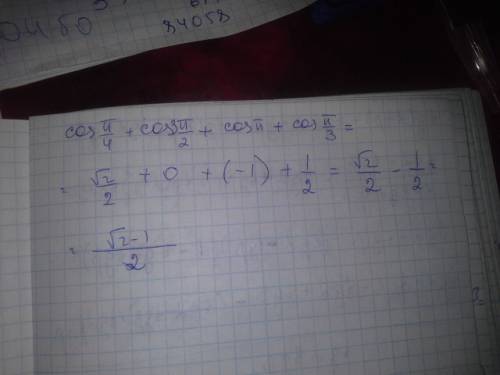 84058
cos π/4 + cos π/2 + cos π + cos π/3 =
= √2/2 + 0 + (-1) + 1/2 = √2/2 - 1/2 =
= √2-1/2